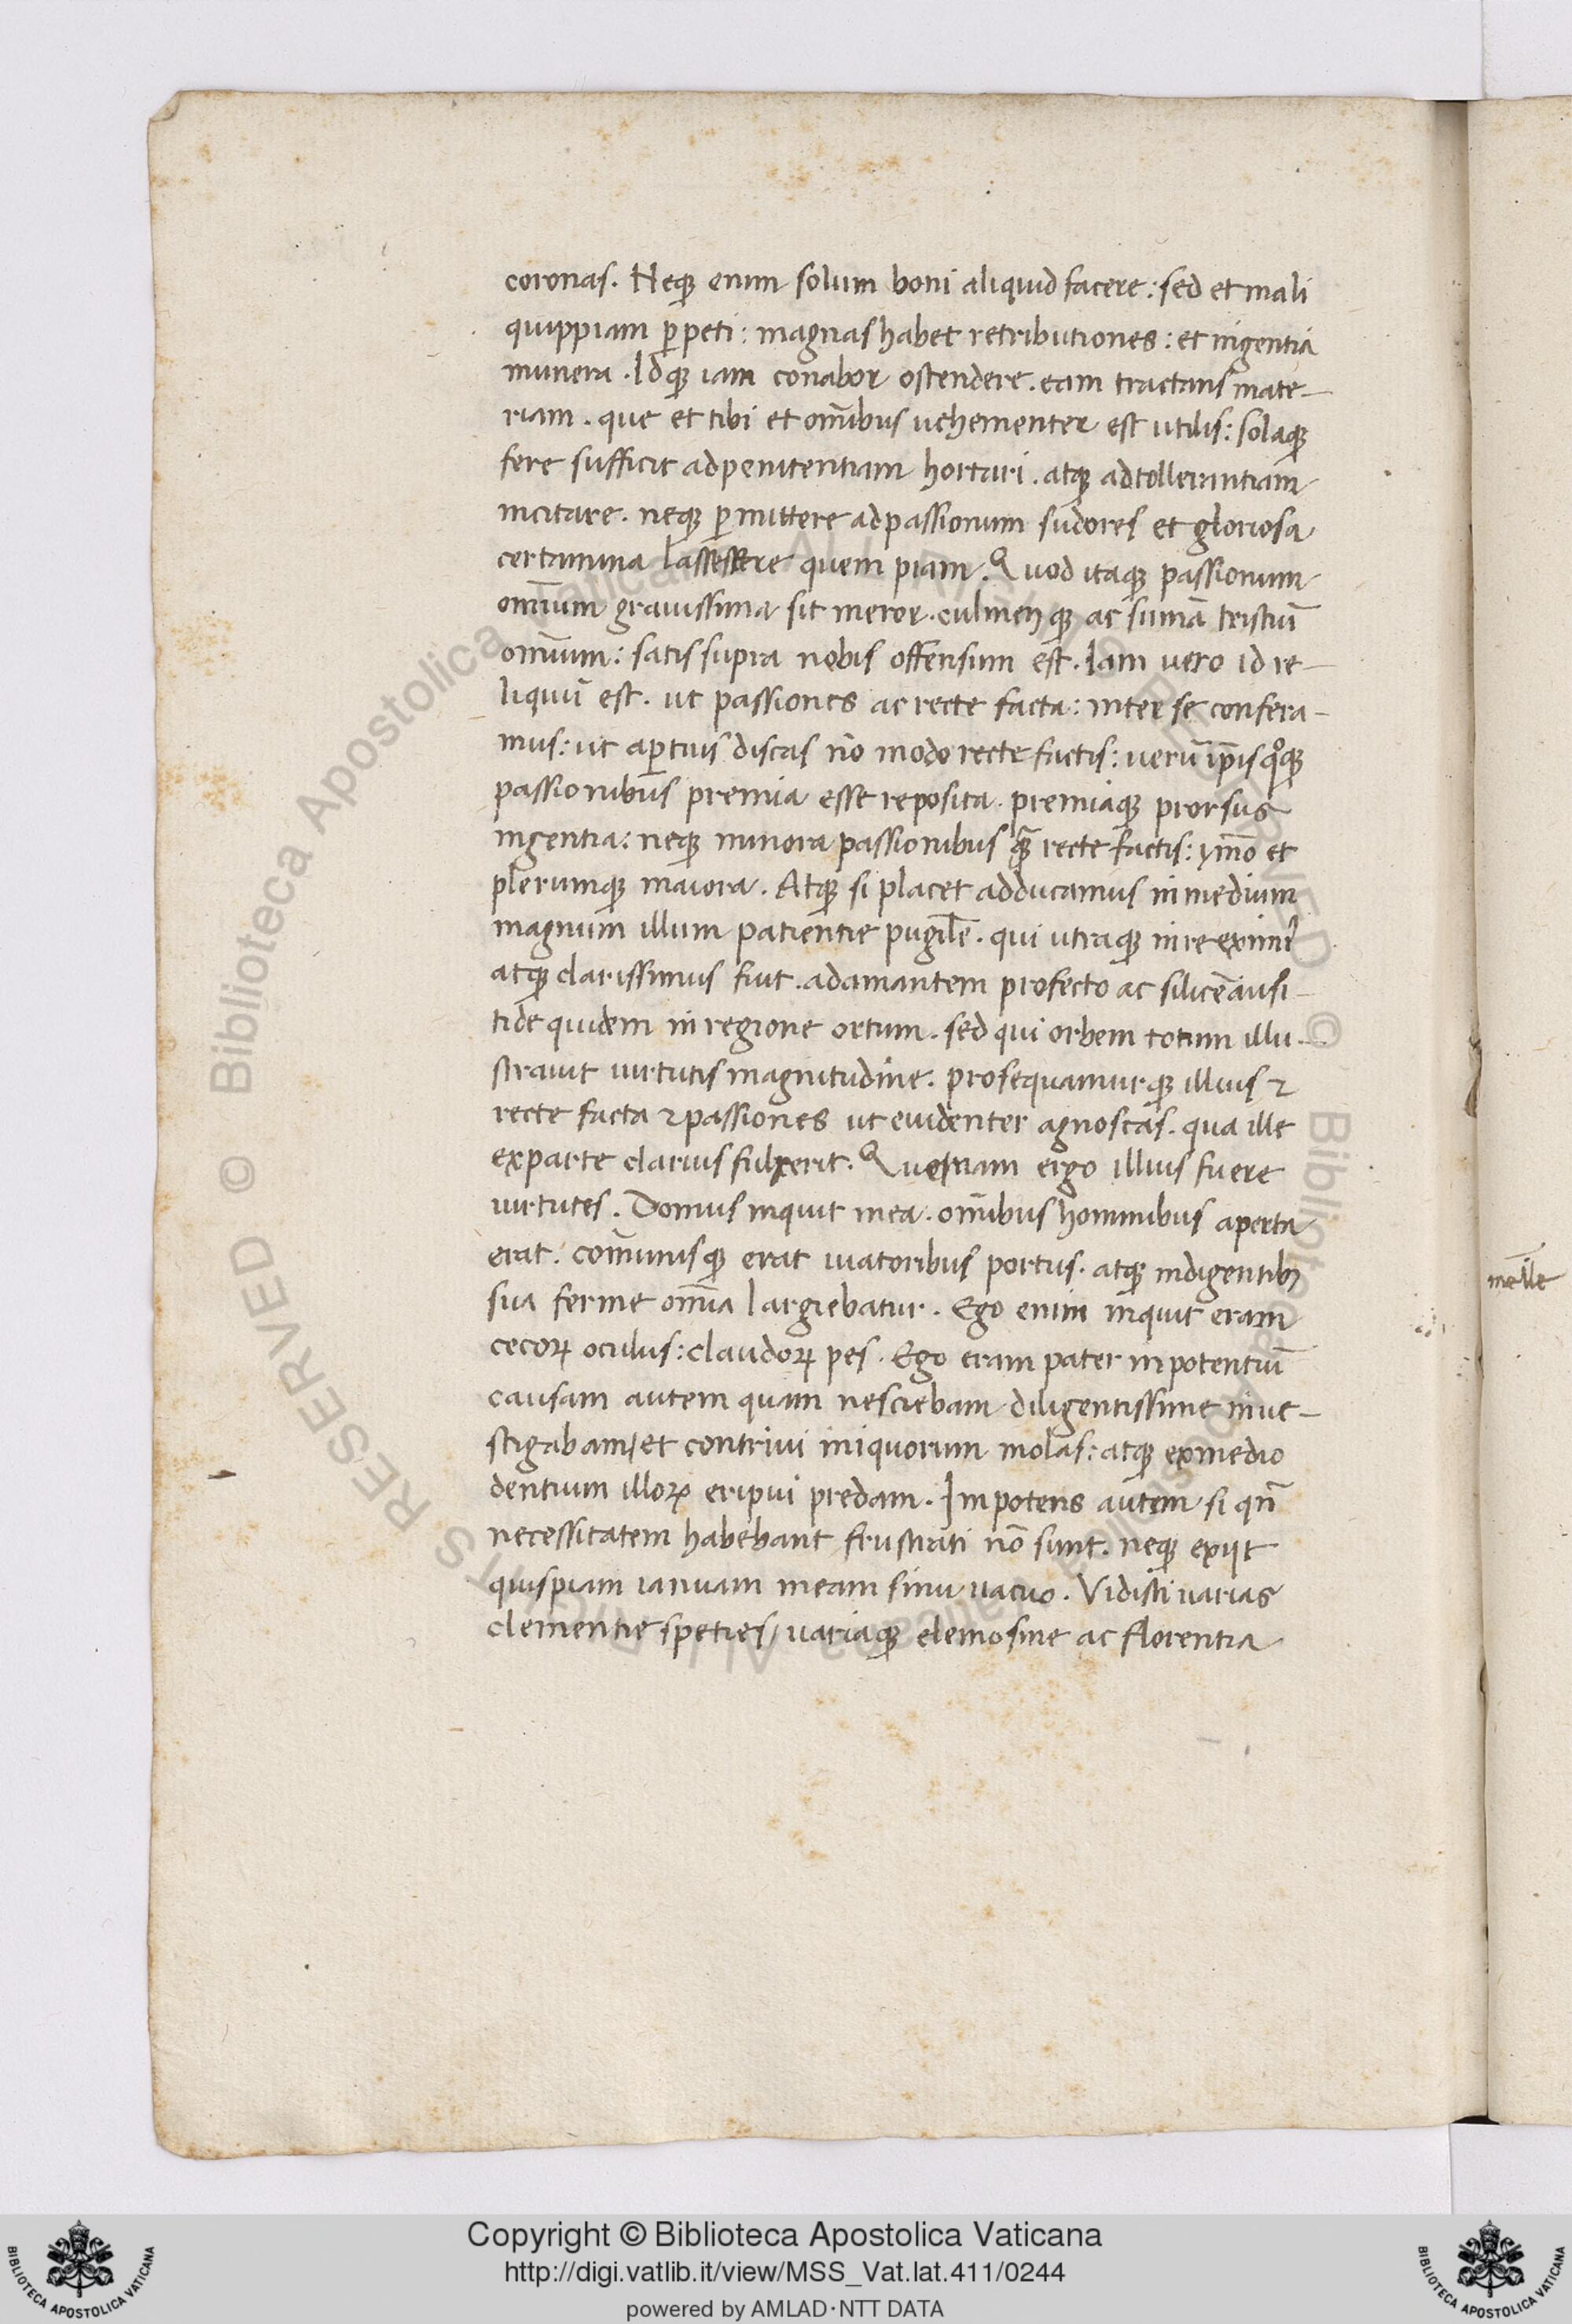 coronas. Neqꝫ enim solum boni aliquid facere: sed et mali
quippiam ꝑpeti: magnas habet retributiones: et ingentia
munera. Idqꝫ iam conabor ostendere. eam tractans mate-
riam. que et tibi et om̄ibus uehementer est utilis: solaqꝫ
fere sufficit ad penitentiam hortari. atqꝫ ad tollerantiam
incitare. neqꝫ ꝑmittere ad passionum sudores et gloriosa
certamina quem piam. Quod itaqꝫ passionum
om̄ium grauissima sit meror. culmenqꝫ ac sum̄a tristiū
om̄ium: satis supra nobis offensum est. Iam uero id re-
liquū est. ut passiones ac recte facta: inter se confera-
mus: ut aꝑtius discas nō modo recte factis: uerū ip̄is qͦqꝫ
passionibus premia esse reposita. premiaqꝫ prorsus
ingentia: neqꝫ minora passionibus qᷓ recte factis: ym̄o et
plerumqꝫ maiora. Atqꝫ si placet adducamus in medium
magnum illum patientie pugilē. qui utraqꝫ in re eximiꝰ
atqꝫ clarissimus fuit. adamantem profecto ac silicē ausi-
tide quidem in regione ortum. sed qui orbem totum illu-
strauit uirtutis magnitudine. prosequamurqꝫ illius ⁊
recte facta ⁊ passiones ut euidenter agnoscas. qua ille
ex parte clarius fulxerit. Quenam ergo illius fuere
uirtutes. Domus inquit mea. om̄ibus hominibus aperta
erat. com̄unisqꝫ erat uiatoribus portus. atqꝫ indigentibꝫ
sua ferme om̄ia largiebatur. Ego enim inquit eram
cecoꝝ oculus: claudoꝝ pes. Ego eram pater inpotentiū
causam autem quam nesciebam diligentissime inue-
stigabam/ et contriui iniquorum molas: atqꝫ ex medio
dentium illoꝝ eripui predam. Inpotens autem si qn̄
necessitatem habebant frustrati nō sunt. neqꝫ exijt
quispiam ianuam meam sinu uacuo. Vidisti uarias
clementie speties/ uariaqꝫ elemosine ac florentia
Copyright © Biblioteca Apostolica Vaticana
http://digi.vatlib.it/view/MSS_Vat.lat.411/0244
powered by AMLAD·NTT DATA